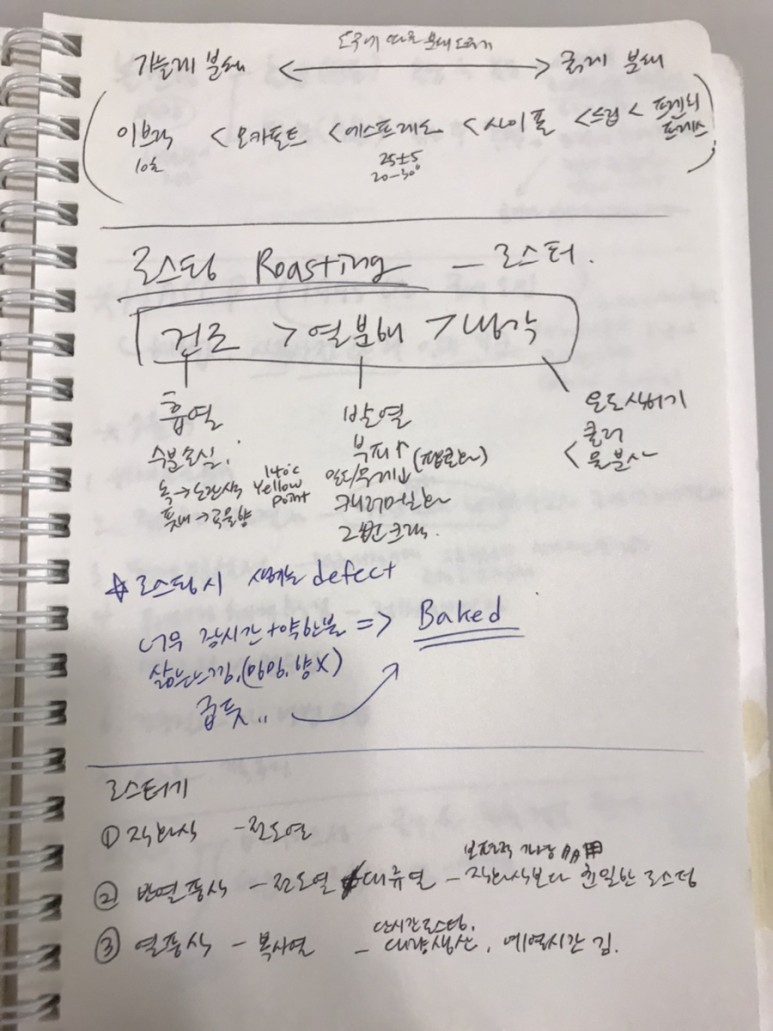 도구에 따른 분쇄도 크기
가늘게 분쇄 <-> 굵게 분쇄
(이브릭 < 모카포트 < 에스프레소 < 사이폰 < 드립 < 프렌치 프레스)
10초
25±5
20-30
로스팅 Roasting - 로스터.
건조 > 열분해 > 냉각
흡열
수분손실.
녹→노란색
풋내→고운향
140℃ Yellow Point
발열
부피↑ (팝콘화)
밀도/무게↓
캐러멜화
2번 크랙.
쿨러
물분사
☆ 로스팅시 생기는 defect
너무 장시간+약한불 => Baked
삶는느낌.(맛, 향X)
로스터기
① 직화식 - 전도열
② 반열풍식 - 전도열+대류열 - 직화식보다 균일한 로스팅
보편적
③ 열풍식 - 복사열 - 단시간로스팅,
대량생산, 예열시간 김.